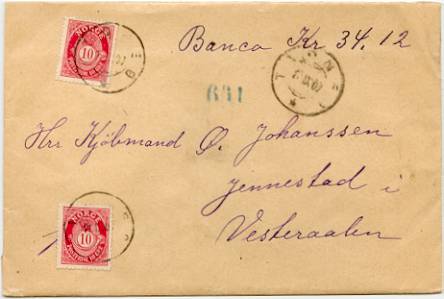 Banco Kr 34.12
NORGE
10
631
Hrr Kjöbmand Ø. Johanssen
Jennestad i
Vesteraalen
NORGE
10